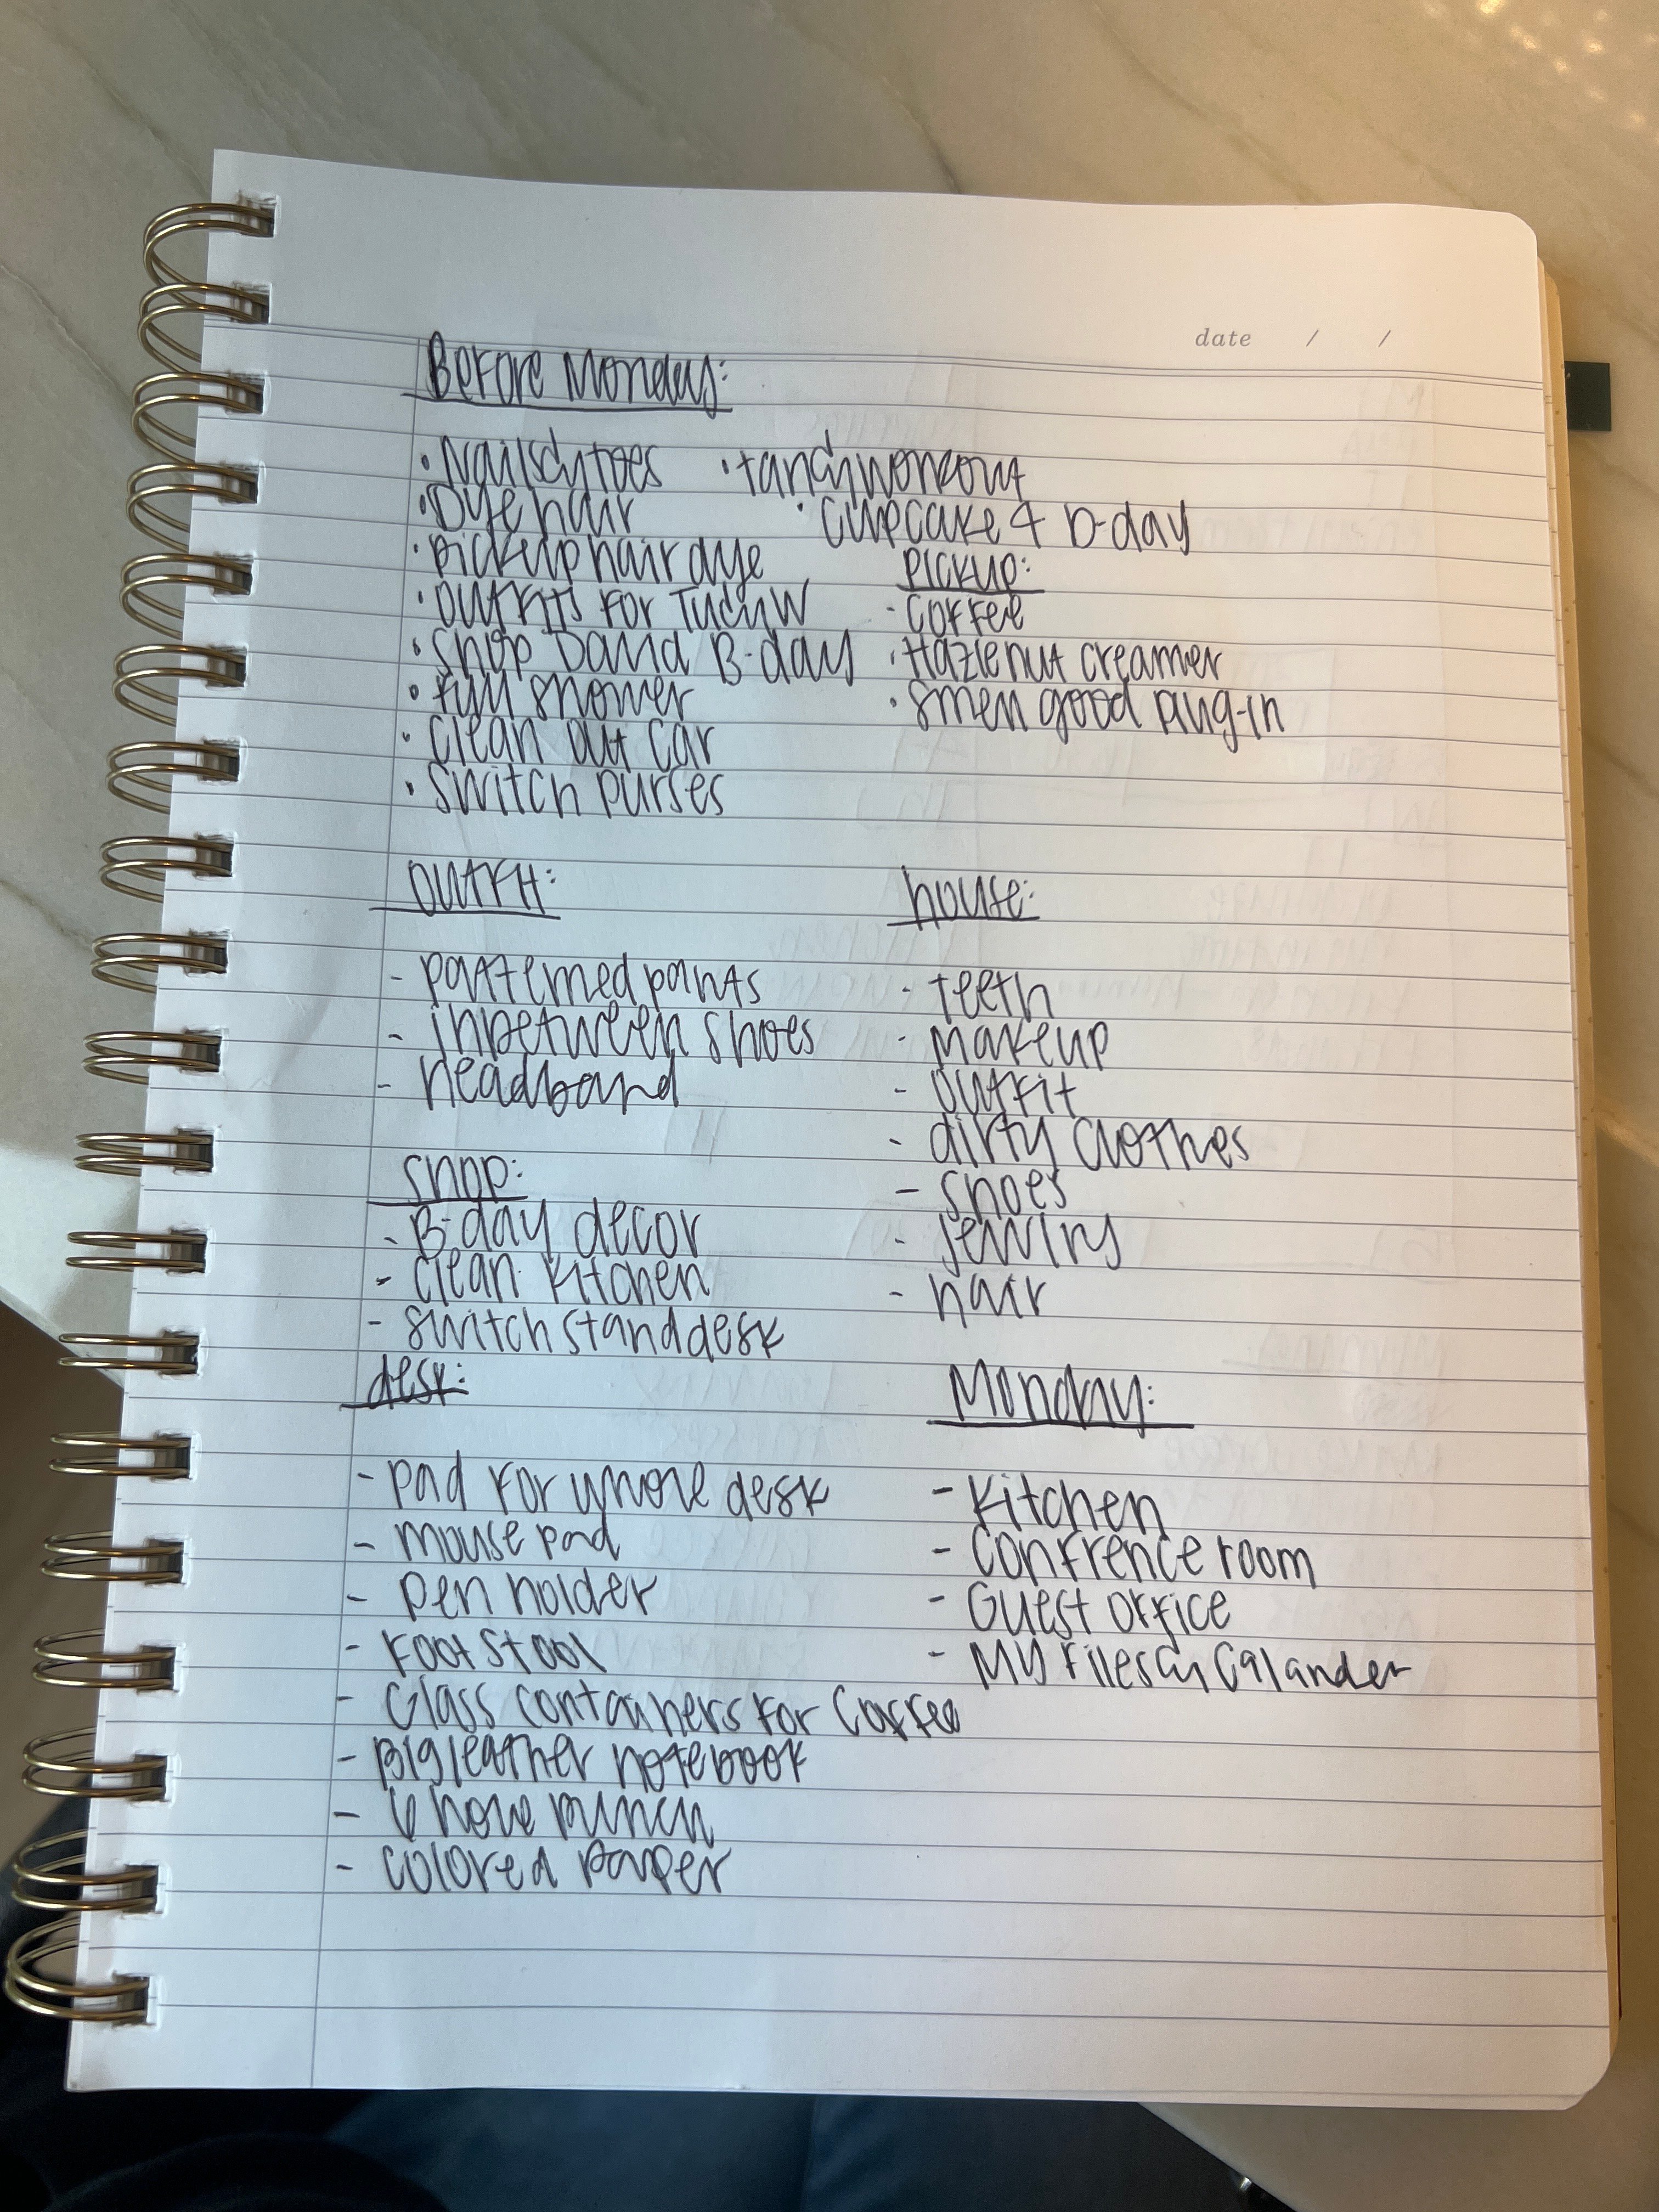 date / /
Before Monday:
• Nails & toes
• Dye hair
• pickup hair dye
• outfits for Tu & W
• Shop David B-day
• full shower
• clean out car
• switch purses
• tan & workout
• cupcake 4 D-day
Pickup:
- coffee
• Hazlenut creamer
• smell good plug-in
outfit:
- patterned pants
- inbetween shoes
- headband
house:
- teeth
- makeup
- outfit
- dirty clothes
- shoes
- jewlry
- hair
shop:
- B-day decor
- clean kitchen
- switch stand desk
desk:
- pad for whole desk
- mouse pad
- pen holder
- foot stool
- Glass containers for Coffee
- Big leather notebook
- 6 hole punch
- colored paper
Monday:
- Kitchen
- Confrence room
- Guest office
- My files & Calander